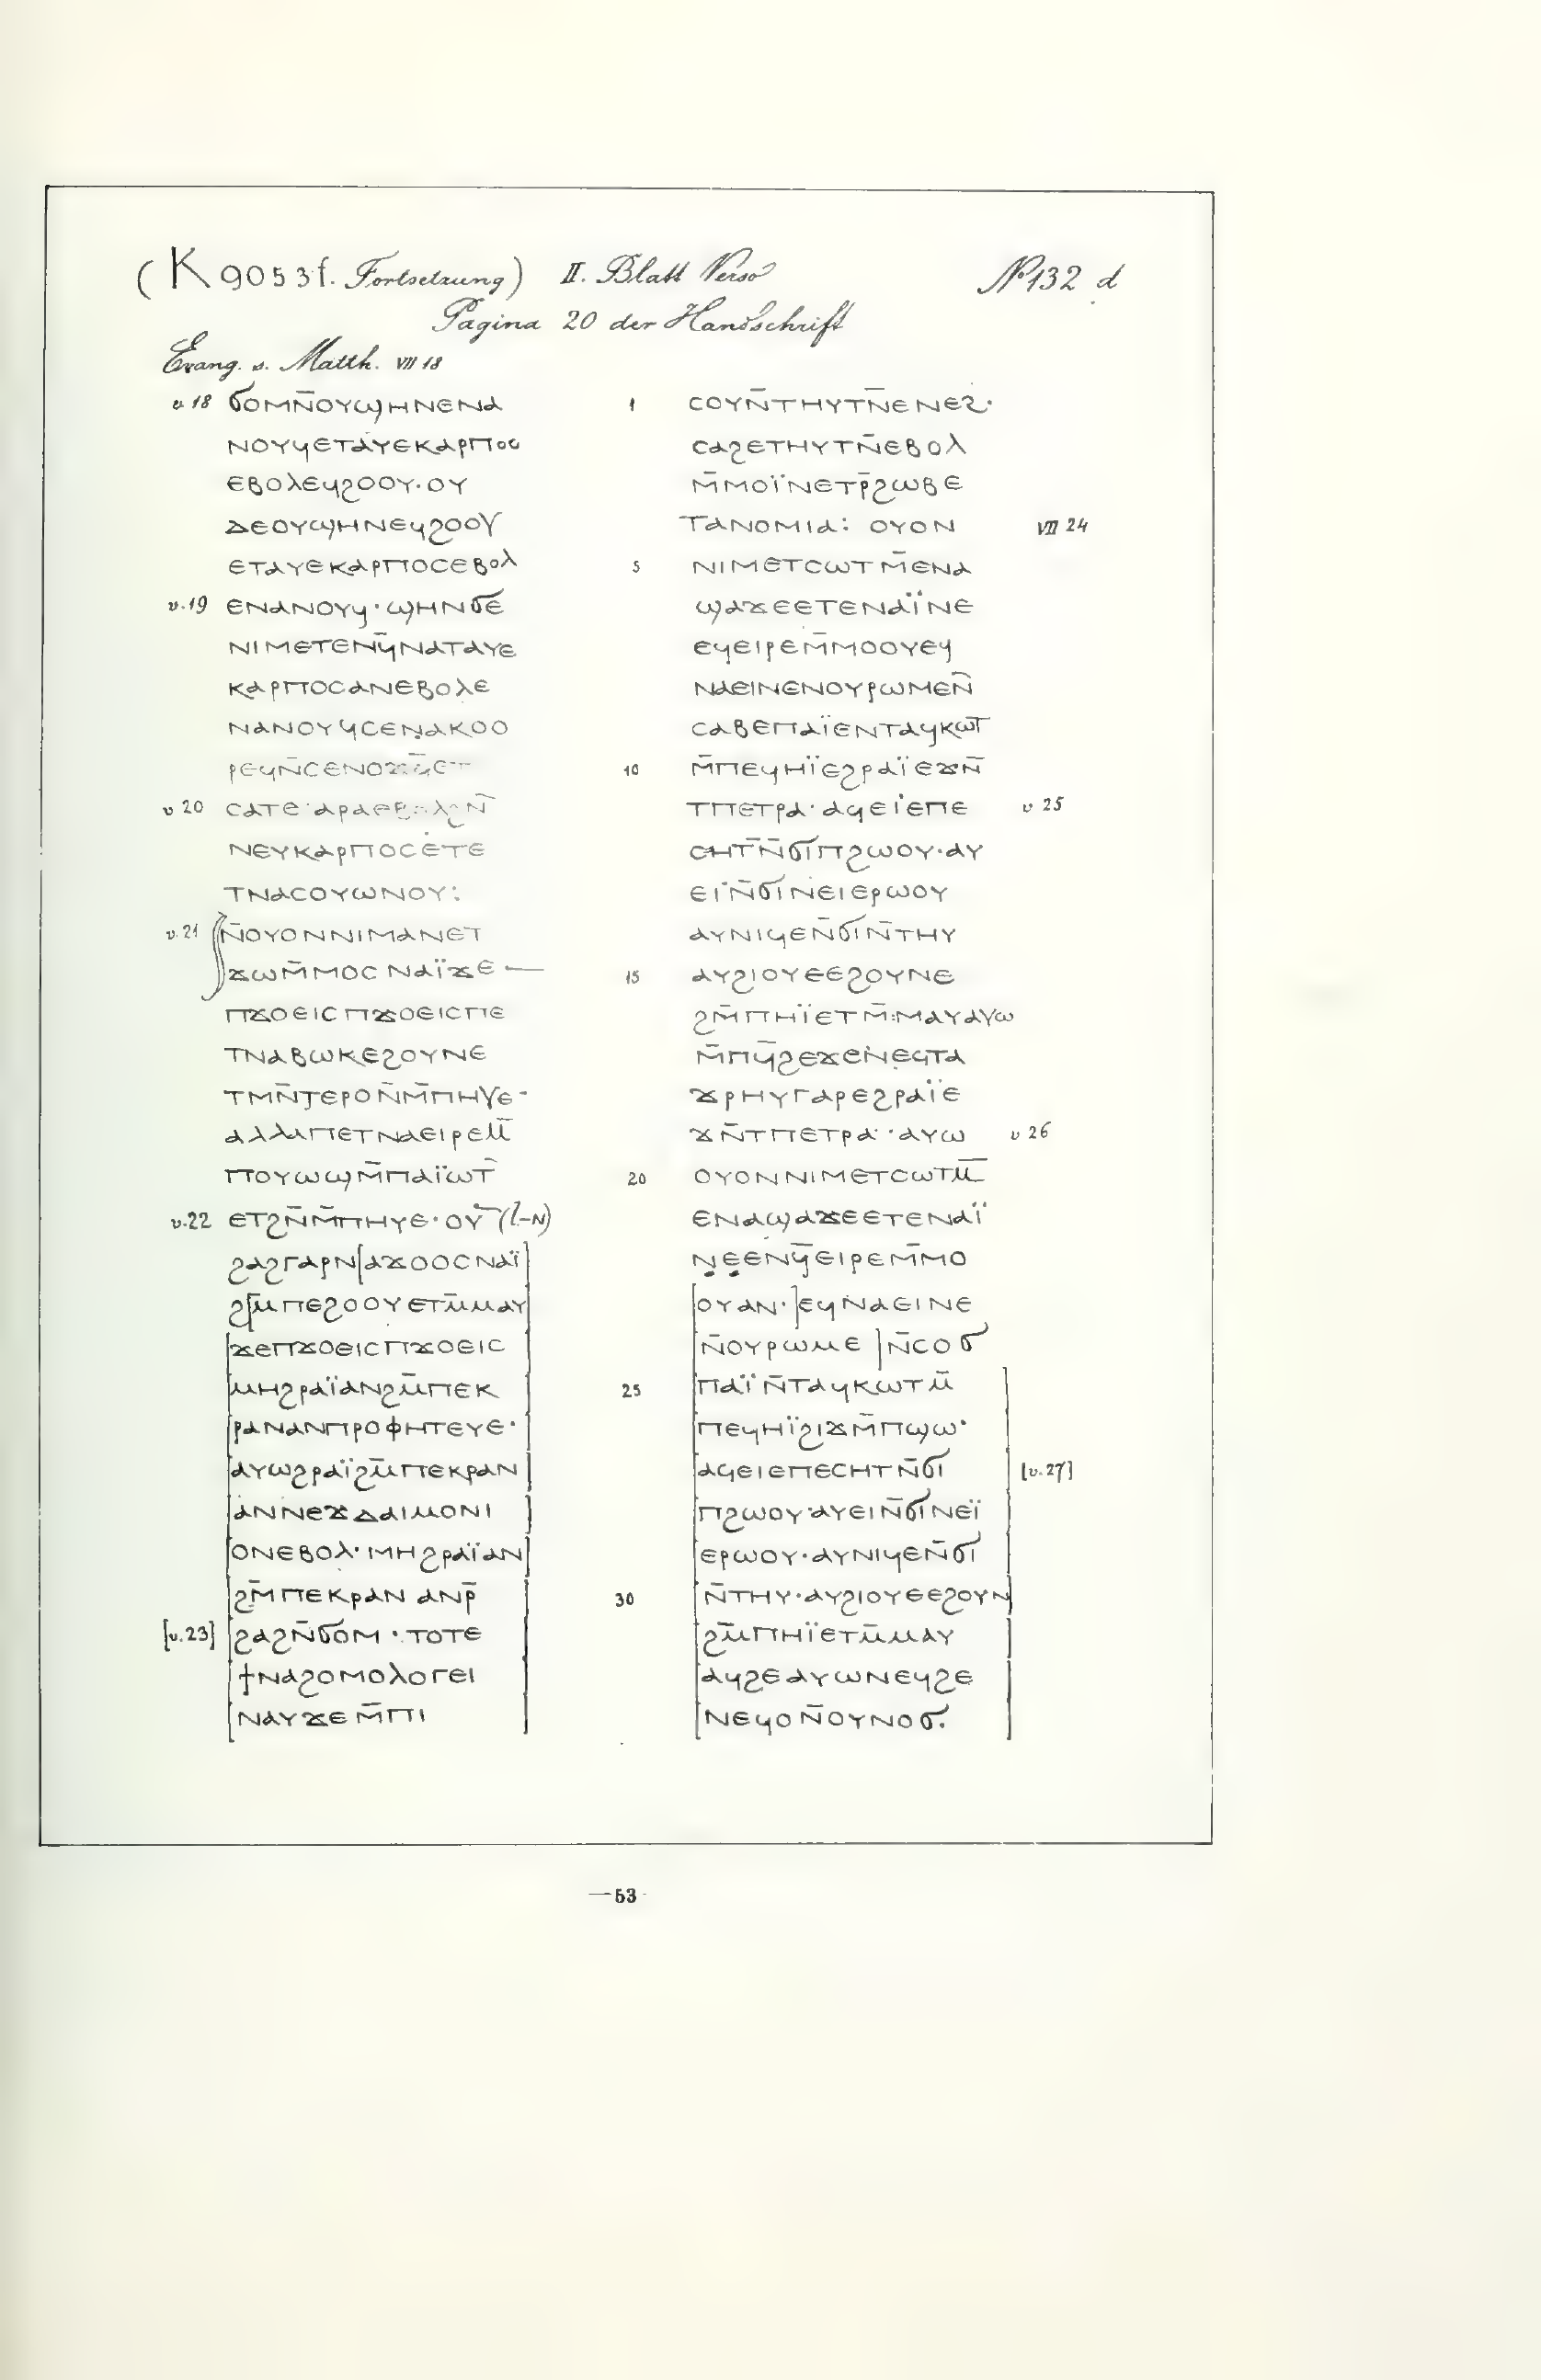 (K 9053 f. Fortsetzung) II. Blatt Verso № 132 d
Pagina 20 der Handschrift
Evang. s. Matth. VII 18
v. 18 ϭⲟⲙⲛ̄ⲟⲩϣⲏⲛⲉⲛⲁ
ⲛⲟⲩϥⲉⲧⲁⲩⲉⲕⲁⲣⲡⲟⲥ
ⲉⲃⲟⲗⲉϥϩⲟⲟⲩ·ⲟⲩ
ⲇⲉⲟⲩϣⲏⲛⲉϥϩⲟⲟⲩ
ⲉⲧⲁⲩⲉⲕⲁⲣⲡⲟⲥⲉⲃⲟⲗ
v. 19 ⲉⲛⲁⲛⲟⲩϥ·ϣⲏⲛϭⲉ
ⲛⲓⲙⲉⲧⲉⲛϥ̄ⲛⲁⲧⲁⲩⲉ
ⲕⲁⲣⲡⲟⲥⲁⲛⲉⲃⲟⲗⲉ
ⲛⲁⲛⲟⲩϥⲥⲉⲛⲁⲕⲟⲟ
ⲣⲉϥⲛ̄ⲥⲉⲛⲟϫϥ̄ⲉⲧ
v 20 ⲥⲁⲧⲉ·ⲁⲣⲁⲉⲃⲟⲗϩⲛ̄
ⲛⲉⲩⲕⲁⲣⲡⲟⲥⲉⲧⲉ
ⲧⲛⲁⲥⲟⲩⲱⲛⲟⲩ:
v. 21 ⲛ̄ⲟⲩⲟⲛⲛⲓⲙⲁⲛⲉⲧ
ϫⲱⲙ̄ⲙⲟⲥⲛⲁⲓ̈ϫⲉ —
ⲡϫⲟⲉⲓⲥⲡϫⲟⲉⲓⲥⲡⲉ
ⲧⲛⲁⲃⲱⲕⲉϩⲟⲩⲛⲉ
ⲧⲙⲛ̄ⲧⲉⲣⲟⲛ̄ⲙ̄ⲡⲏⲩⲉ·
ⲁⲗⲗⲁⲡⲉⲧⲛⲁⲉⲓⲣⲉⲙ̄
ⲡⲟⲩⲱϣⲙ̄ⲡⲁⲓ̈ⲱⲧ
v. 22 ⲉⲧϩⲛ̄ⲙ̄ⲡⲏⲩⲉ·ⲟⲩ̄ (l-ⲛ)
ϩⲁϩⲅⲁⲣⲛ[ⲁϫⲟⲟⲥⲛⲁⲓ̈]
ϩ[ⲙ̄ⲡⲉϩⲟⲟⲩⲉⲧⲙ̄ⲙⲁⲩ]
[ϫⲉⲡϫⲟⲉⲓⲥⲡϫⲟⲉⲓⲥ]
[ⲙⲏϩⲣⲁⲓ̈ⲁⲛϩⲙ̄ⲡⲉⲕ]
[ⲣⲁⲛⲁⲛⲡⲣⲟⲫⲏⲧⲉⲩⲉ·]
[ⲁⲩⲱϩⲣⲁⲓ̈ϩⲙ̄ⲡⲉⲕⲣⲁⲛ]
[ⲁⲛⲛⲉϫⲇⲁⲓⲙⲟⲛⲓ]
[ⲟⲛⲉⲃⲟⲗ·ⲙⲏϩⲣⲁⲓ̈ⲁⲛ]
[ϩⲙ̄ⲡⲉⲕⲣⲁⲛ ⲁⲛⲣ̄]
[v. 23] [ϩⲁϩⲛ̄ϭⲟⲙ·ⲧⲟⲧⲉ]
[ϯⲛⲁϩⲟⲙⲟⲗⲟⲅⲉⲓ]
[ⲛⲁⲩϫⲉⲙ̄ⲡⲓ]
1 ⲥⲟⲩⲛ̄ⲧⲏⲩⲧⲛ̄ⲉⲛⲉϩ·
ⲥⲁϩⲉⲧⲏⲩⲧⲛ̄ⲉⲃⲟⲗ
ⲙ̄ⲙⲟⲓ̈ⲛⲉⲧⲣ̄ϩⲱⲃⲉ
ⲧⲁⲛⲟⲙⲓⲁ: ⲟⲩⲟⲛ VII 24
5 ⲛⲓⲙⲉⲧⲥⲱⲧⲙ̄ⲉⲛⲁ
ϣⲁϫⲉⲉⲧⲉⲛⲁⲓ̈ⲛⲉ
ⲉϥⲉⲓⲣⲉⲙ̄ⲙⲟⲟⲩⲉϥ
ⲛⲁⲉⲓⲛⲉⲛⲟⲩⲣⲱⲙⲉⲛ̄
ⲥⲁⲃⲉⲡⲁⲓ̈ⲉⲛⲧⲁϥⲕⲱⲧ
10 ⲙ̄ⲡⲉϥⲏⲓ̈ⲉϩⲣⲁⲓ̈ⲉϫⲛ̄
ⲧⲡⲉⲧⲣⲁ·ⲁϥⲉⲓⲉⲡⲉ v 25
ⲥⲏⲧⲛ̄ϭⲓⲡϩⲱⲟⲩ·ⲁⲩ
ⲉⲓⲛ̄ϭⲓⲛⲉⲓⲉⲣⲱⲟⲩ
ⲁⲩⲛⲓϥⲉⲛ̄ϭⲓⲛ̄ⲧⲏⲩ
15 ⲁⲩϩⲓⲟⲩⲉⲉϩⲟⲩⲛⲉ
ϩⲙ̄ⲡⲏⲓ̈ⲉⲧⲙ̄ⲙⲁⲩⲁⲩⲱ
ⲙ̄ⲡϥ̄ϩⲉϫⲉⲛⲉϥⲧⲁ
ϫⲣⲏⲩⲅⲁⲣⲉϩⲣⲁⲓ̈ⲉ
ϫⲛ̄ⲧⲡⲉⲧⲣⲁ·ⲁⲩⲱ v 26
20 ⲟⲩⲟⲛⲛⲓⲙⲉⲧⲥⲱⲧⲙ̄
ⲉⲛⲁϣⲁϫⲉⲉⲧⲉⲛⲁⲓ̈
ⲛⲉⲉⲛϥ̄ⲉⲓⲣⲉⲙ̄ⲙⲟ
[ⲟⲩⲁⲛ·]ⲉϥⲛⲁⲉⲓⲛⲉ
[ⲛ̄ⲟⲩⲣⲱⲙⲉ]ⲛ̄ⲥⲟϭ
25 [ⲡⲁⲓ̈ⲛ̄ⲧⲁϥⲕⲱⲧⲙ̄]
[ⲡⲉϥⲏⲓ̈ϩⲓϫⲙ̄ⲡϣⲱ·]
[ⲁϥⲉⲓⲉⲡⲉⲥⲏⲧⲛ̄ϭⲓ] [v. 27]
[ⲡϩⲱⲟⲩ·ⲁⲩⲉⲓⲛ̄ϭⲓⲛⲉⲓ̈]
[ⲉⲣⲱⲟⲩ·ⲁⲩⲛⲓϥⲉⲛ̄ϭⲓ]
30 [ⲛ̄ⲧⲏⲩ·ⲁⲩϩⲓⲟⲩⲉⲉϩⲟⲩⲛ]
[ϩⲙ̄ⲡⲏⲓ̈ⲉⲧⲙ̄ⲙⲁⲩ]
[ⲁϥϩⲉⲁⲩⲱⲛⲉϥϩⲉ]
[ⲛⲉϥⲟⲛ̄ⲟⲩⲛⲟϭ.]
— 53 -